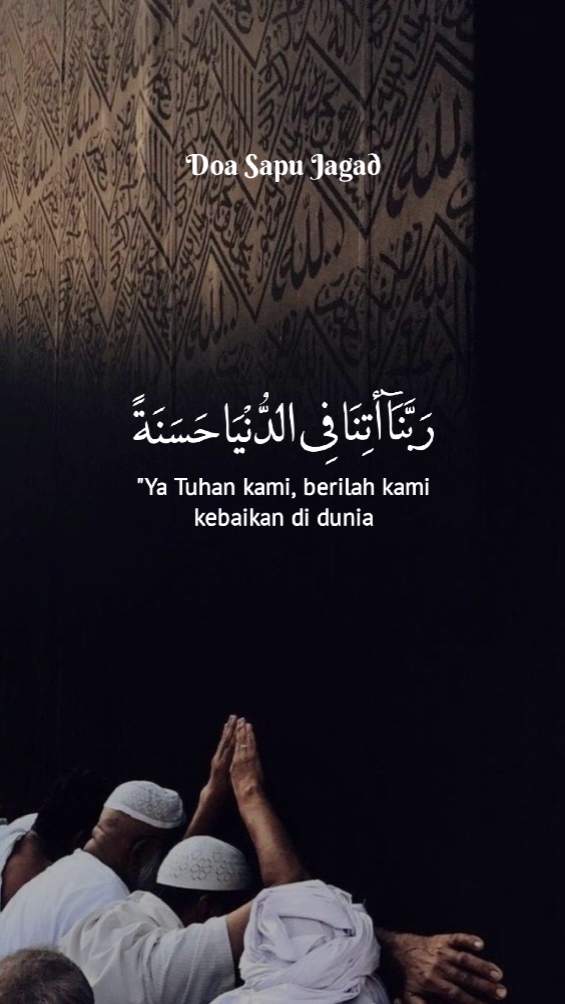 Doa Sapu Jagad
رَبَّنَآ أَتِنَا فِى الدُّنْيَا حَسَنَةً
"Ya Tuhan kami, berilah kami
kebaikan di dunia